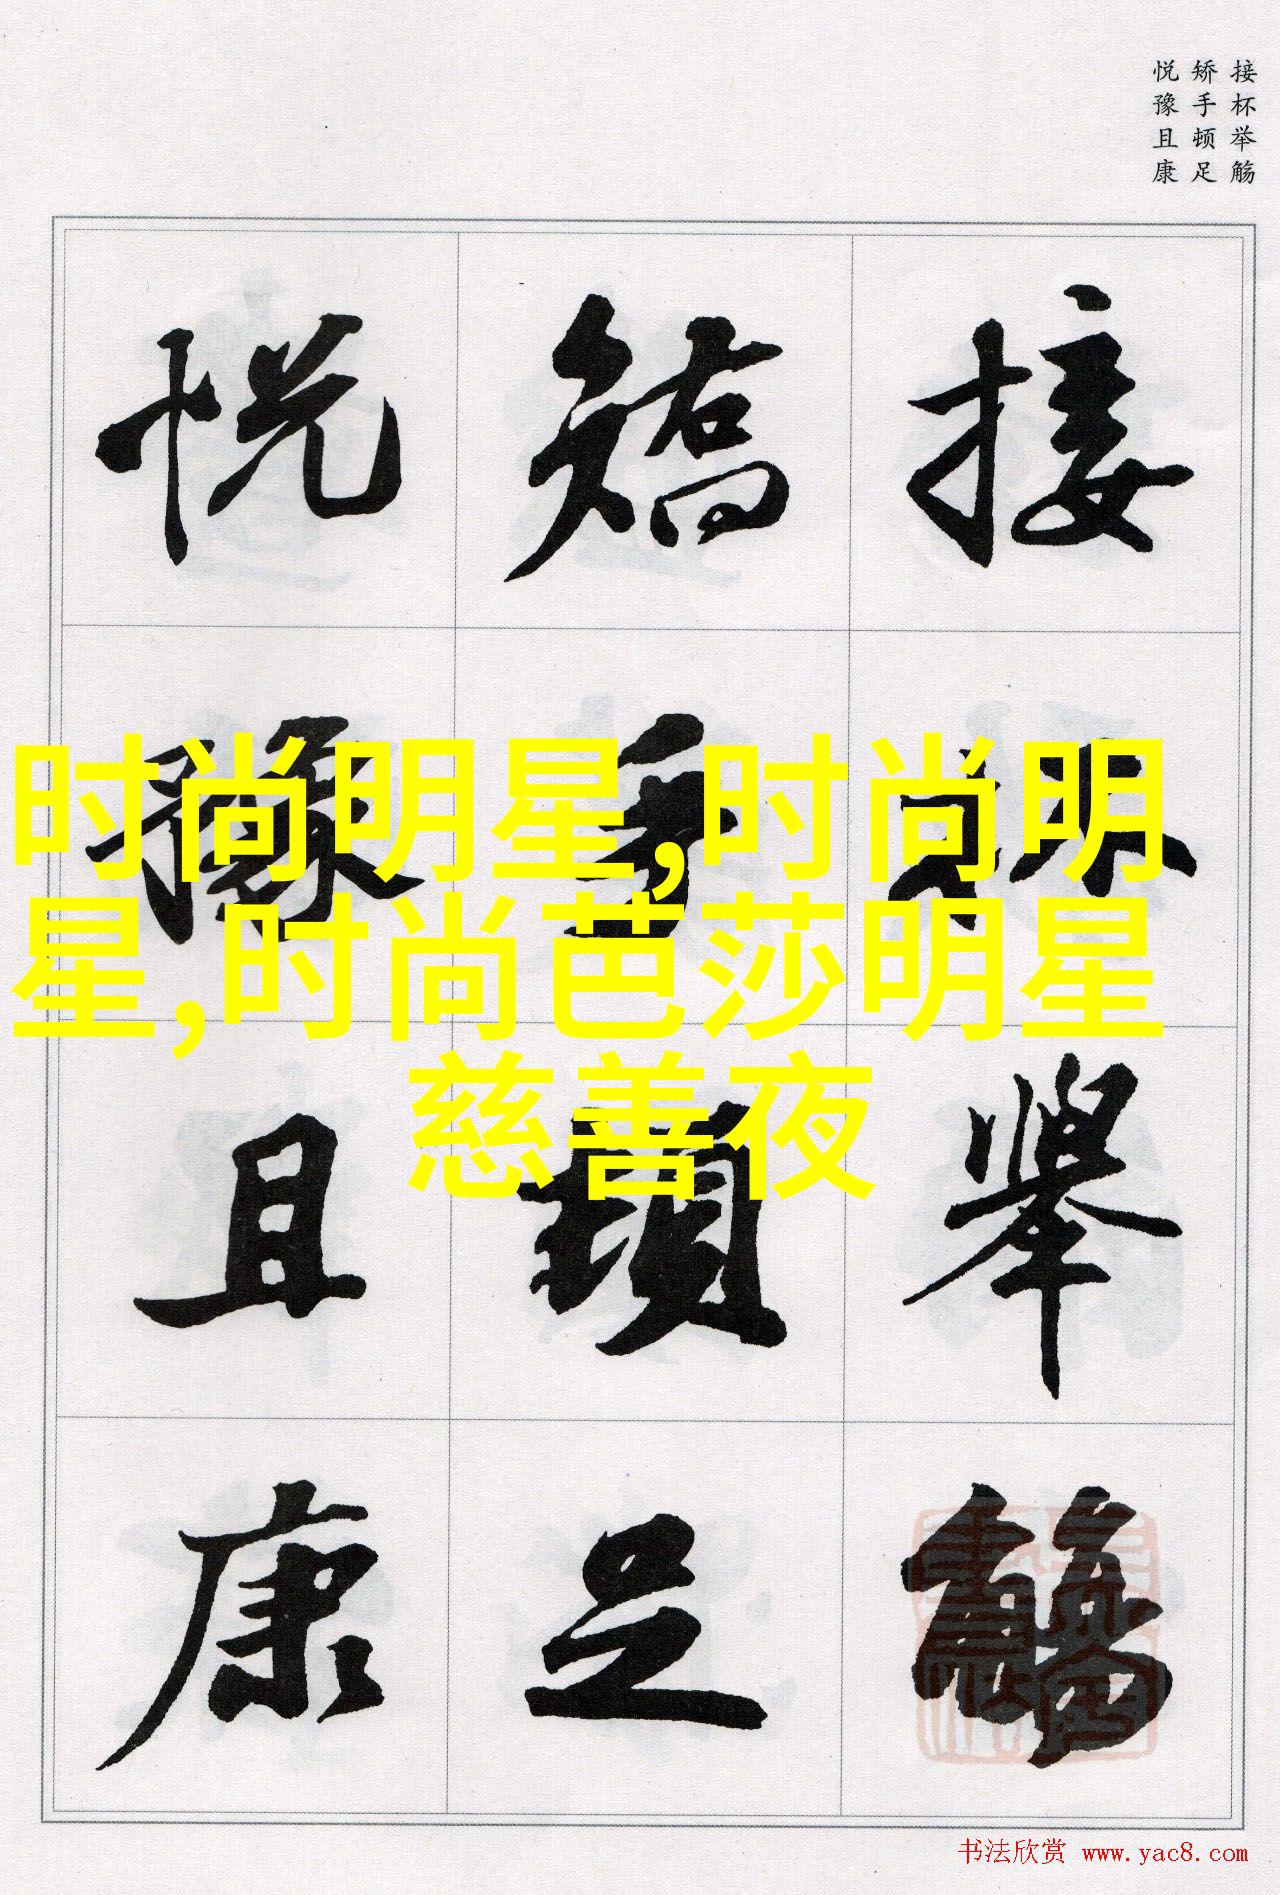 接杯举觞
矫手顿足
悦豫且康
接杯舉觴
矯手頓足
悦豫且康
时尚明星,时尚明
星,时尚芭莎明星
慈善夜
书法欣赏 www.yac8.com